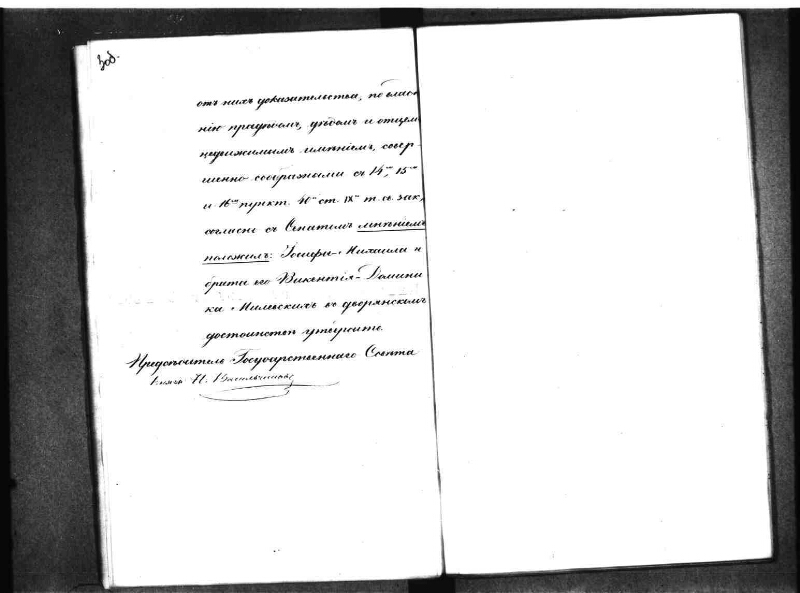 3об.
отъ нихъ доказательства, по владѣ-
нію прадѣдомъ, дѣдомъ и отцемъ
недвижимымъ имѣніемъ, совер-
шенно сообразными съ 14м, 15м
и 16м пункт. 40й ст. IX т. св. зак.,
согласно съ Сенатомъ мнѣніемъ
положилъ: Іосифа-Михаила и
брата его Викентія-Домини-
ка Милевскихъ въ дворянскомъ
достоинствѣ утвердить.
Предсѣдатель Государственнаго Совѣта
Князь И. Васильчиковъ